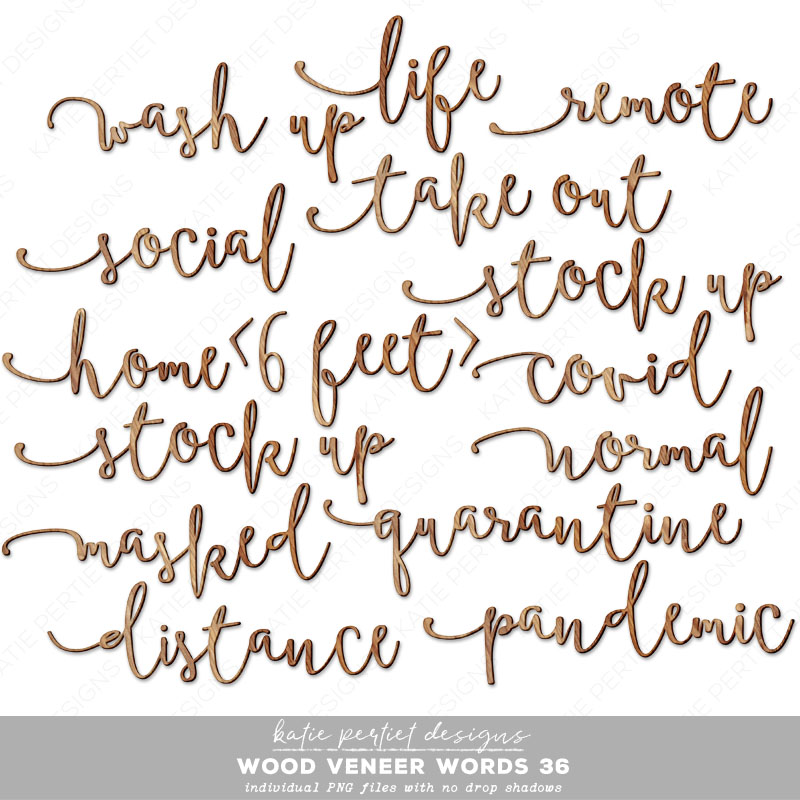 life
wash up
remote
take out
social
stock up
home
<6 feet>
covid
stock up
normal
masked
quarantine
distance
pandemic
katie pertiet designs
WOOD VENEER WORDS 36
individual PNG files with no drop shadows
KATIE PERTIET DESIGNS